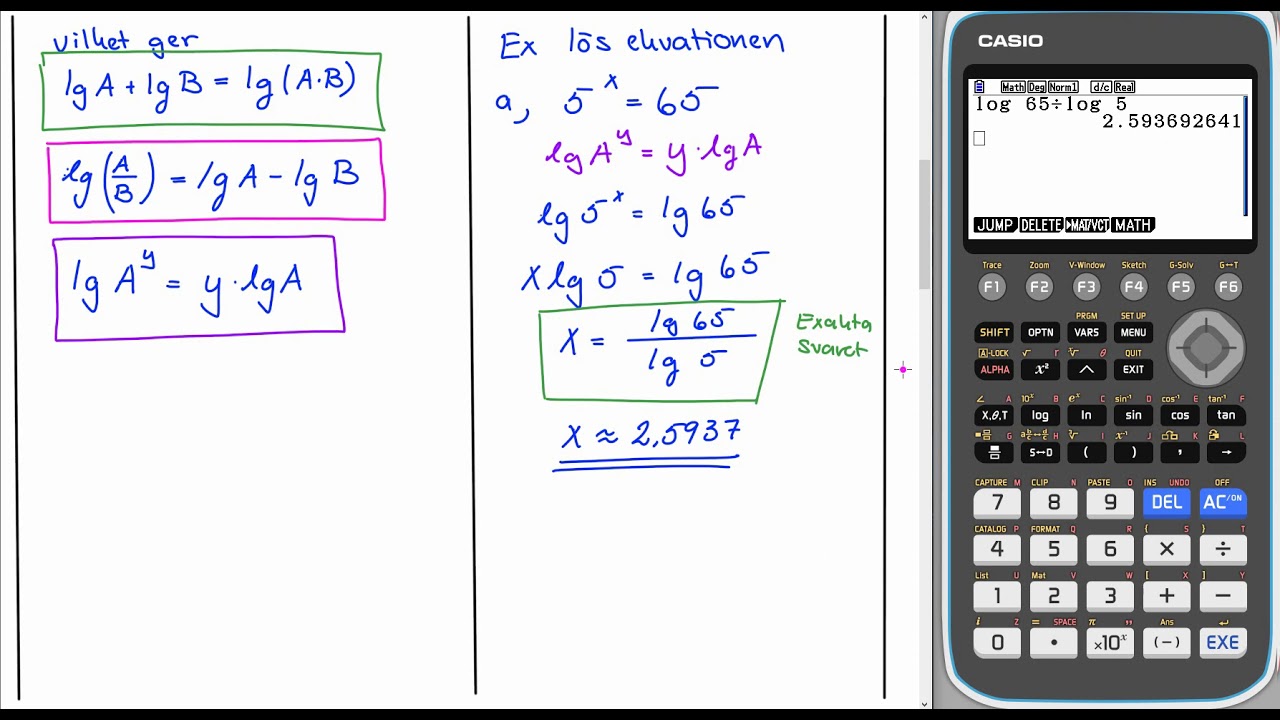 vilket ger
lg A + lg B = lg (A·B)
lg (A/B) = lg A − lg B
lg A^y = y · lg A
Ex lös ekvationen
a, 5^x = 65
lg A^y = y · lg A
lg 5^x = lg 65
x lg 5 = lg 65
x = lg 65 / lg 5
Exakta
svaret
x ≈ 2,5937
CASIO
Math Deg Norm1 d/c Real
log 65÷log 5
2.593692641
JUMP DELETE ▶MAT/VCT MATH
Trace Zoom V-Window Sketch G-Solv G↔T
F1 F2 F3 F4 F5 F6
PRGM SET UP
SHIFT OPTN VARS MENU
A-LOCK √ r θ QUIT
ALPHA x² ^ EXIT
∠ A 10ˣ B eˣ C sin⁻¹ D cos⁻¹ E tan⁻¹ F
X,θ,T log ln sin cos tan
G H I x⁻¹ J K L
S↔D ( ) , →
CAPTURE M CLIP N PASTE O INS UNDO OFF
7 8 9 DEL AC/ON
CATALOG P FORMAT Q R { S } T
4 5 6 × ÷
List U Mat V W [ X ] Y
1 2 3 + −
i Z = SPACE π " Ans ↵
0 • ×10ˣ (−) EXE